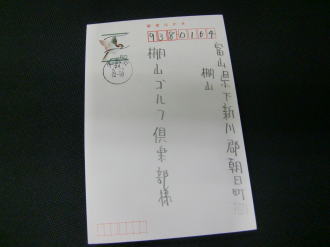 郵便はがき
9380164
富山県下新川郡朝日町
棚山
棚山ゴルフ倶楽部様